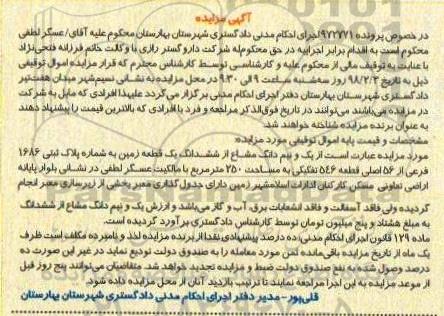 آگهی مزایده
در خصوص پرونده 972771 اجرای احکام مدنی دادگستری شهرستان بهارستان محکوم علیه آقای/عسگر لطفی
محکوم است به اقدام برابر اجراییه در حق محکوم‌له شرکت داروگستر رازی با وکالت خانم فرزانه فتحی‌نژاد
با عنایت به توقیف مالی از محکوم علیه و کارشناسی توسط کارشناس محترم که قرار مزایده اموال توقیفی
ذیل به تاریخ 98/2/3 روز سه‌شنبه ساعت 9 الی 9:30 در محل مزایده به نشانی نسیم‌شهر میدان هفت‌تیر
دادگستری شهرستان بهارستان دفتر اجرای احکام مدنی بر گزار می‌گردد علیهذا افرادی که مایل به شرکت
در مزایده می‌باشند می‌توانند در تاریخ فوق‌الذکر مراجعه و فرد یا افرادی که بالاترین قیمت را پیشنهاد دهند
به عنوان برنده مزایده شناخته خواهند شد.
مشخصات و قیمت پایه اموال توقیفی مورد مزایده:
مورد مزایده عبارت است از یک و نیم دانگ مشاع از ششدانگ یک قطعه زمین به شماره پلاک ثبتی 1686
فرعی از 56 اصلی قطعه 546 تفکیکی به مساحت 250 متر مربع با مالکیت عسگر لطفی در نشانی بلوار پایانه
اراضی تعاونی مسکن کارکنان ادارات اسلامشهر زمین دارای جدول گذاری معبر پخشی از زیرسازی معبر انجام
گردیده ولی فاقد آسفالت و فاقد انشعابات برق، آب و گاز می‌باشد و ارزش یک و نیم دانگ مشاع از ششدانگ
به مبلغ هشتاد و پنج میلیون تومان توسط کارشناس دادگستری بر آورد گردیده است.
ماده 129 قانون اجرای احکام مدنی: ده درصد پیشنهادی نقدا از برنده مزایده اخذ و نامبرده مکلف است ظرف
یک ماه از تاریخ مزایده باقی‌مانده ثمن مورد معامله را به صندوق دولت تودیع نماید در غیر این صورت ده
درصد وصول شده به نفع صندوق دولت ضبط و مزایده تجدید خواهد شد. متقاضیان می‌توانند پنج روز قبل
از موعد مزایده به این اجرا مراجعه نمایند تا ترتیب بازدید آنان از محل مزایده داده شود.
قلی‌پور - مدیر دفتر اجرای احکام مدنی دادگستری شهرستان بهارستان